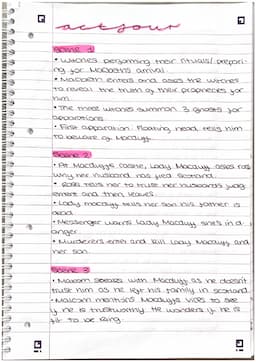 act four
Scene 1
• Witches performing their rituals/prepari-
ng for Macbeth's arrival
• Macbeth enters and asks the witches
to reveal the truth of their prophecies for
him
• The three witches summon 3 ghosts for
apparations
• First apparation: Floating head tells him
to beware of Macduff
Scene 2
• At Macduff's castle, Lady Macduff asks ross
why her husband has fled Scotland.
• Ross tells her to trust her husbands judg
ement and then leaves
• Lady macduff tells her son his father is
dead
• Messenger warns Lady Macduff she's in d-
anger
• Murderers enter and kill Lady Macduff and
her son.
Scene 3
• Malcom speaks with Macduff as he doesn't
trust him as he left his family in scotland.
• Malcom mentions Macduffs vices to see
if he is trustworthy. He wonders if he is
fit to be king